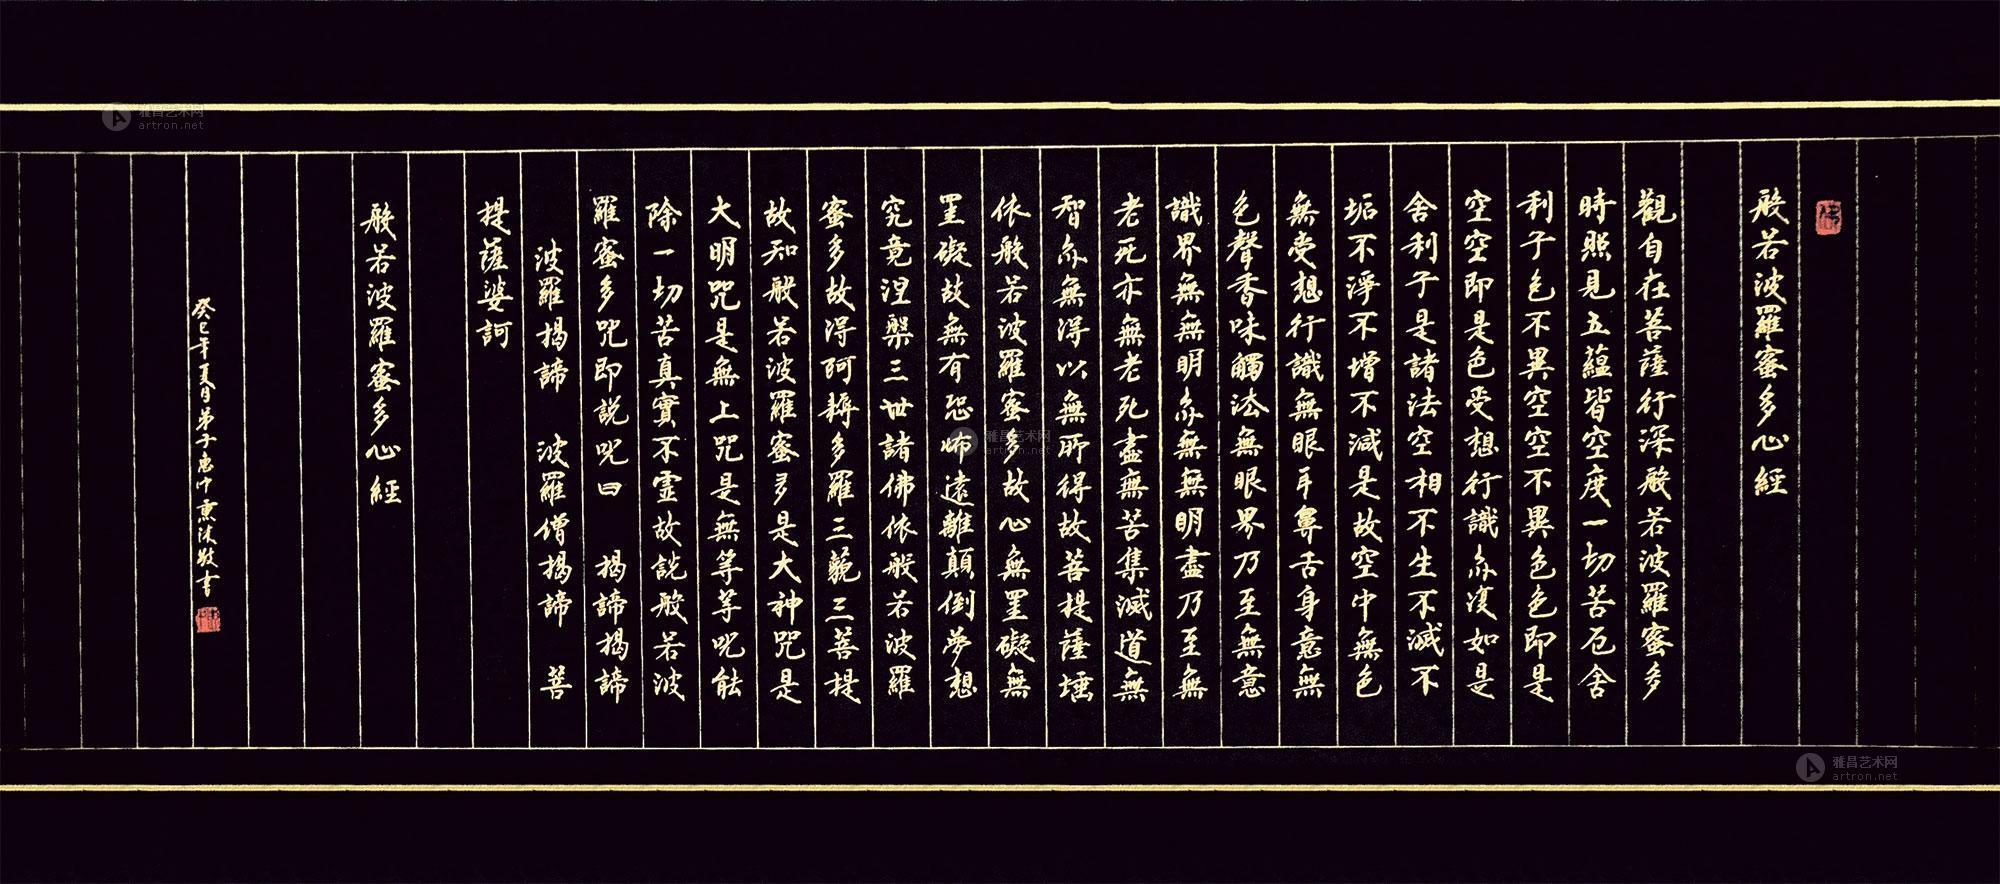 般若波羅蜜多心經
觀自在菩薩行深般若波羅蜜多
時照見五蘊皆空度一切苦厄舍
利子色不異空空不異色色即是
空空即是色受想行識亦復如是
舍利子是諸法空相不生不滅不
垢不淨不增不減是故空中無色
無受想行識無眼耳鼻舌身意無
色聲香味觸法無眼界乃至無意
識界無無明亦無無明盡乃至無
老死亦無老死盡無苦集滅道無
智亦無得以無所得故菩提薩埵
依般若波羅蜜多故心無罣礙無
罣礙故無有恐怖遠離顛倒夢想
究竟涅槃三世諸佛依般若波羅
蜜多故得阿耨多羅三藐三菩提
故知般若波羅蜜多是大神咒是
大明咒是無上咒是無等等咒能
除一切苦真實不虛故說般若波
羅蜜多咒即說咒曰 揭諦揭諦
波羅揭諦 波羅僧揭諦 菩
提薩婆訶
般若波羅蜜多心經
癸巳年夏月弟子惠中熏沐敬書
雅昌艺术网
artron.net
雅昌艺术网
artron.net
雅昌艺术网
artron.net